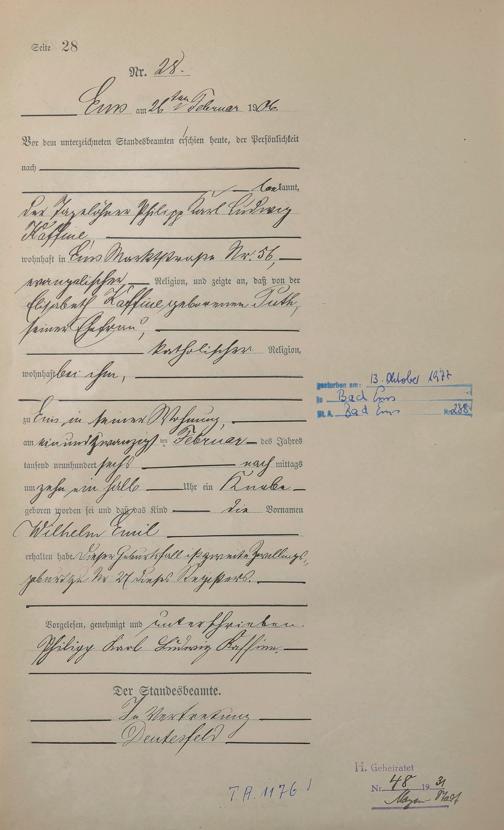 Seite 28
Nr. 28.
Ems am 26ten Februar 1906
Vor dem unterzeichneten Standesbeamten erschien heute, der Persönlichkeit
nach
bekannt,
der Tagelöhner Philipp Karl Ludwig
Kaffine,
wohnhaft in Ems Marktstraße Nr. 56,
evangelischer Religion, und zeigte an, daß von der
Elisabeth Kaffine geborenen
seiner Ehefrau,
katholischer Religion,
wohnhaft bei ihm,
zu Ems in seiner Wohnung,
am einundzwanzigsten Februar des Jahres
tausend neunhundert sechs nach mittags
um zehn ein halb Uhr ein Knabe
geboren worden sei und daß das Kind die Vornamen
Wilhelm Emil
erhalten habe. Dieser Geburtsfall ist zweite Zwillings-
geburt zu Nr 27 dieses Registers.
Vorgelesen, genehmigt und unterschrieben.
Philipp Karl Ludwig Kaffine.
Der Standesbeamte.
In Vertretung
gestorben am: 13. Oktober 1977
in Bad Ems
St. A. Bad Ems Nr. 288
H. Geheiratet
Nr. 48 1931
T.A. 1176